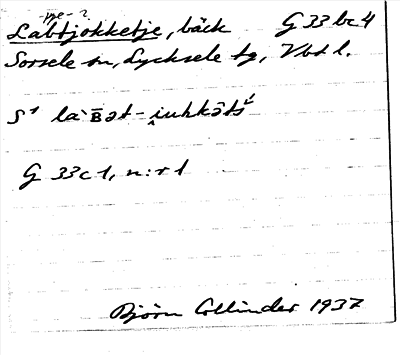 pe-?
Labtjokketje, bäck G 33 bc 4
Sorsele sn, Lycksele tg, Vbt l.
S¹ la`ʙət-i̭uhkət́s
G 33 c 1, n:r 1
Björn Collinder 1937